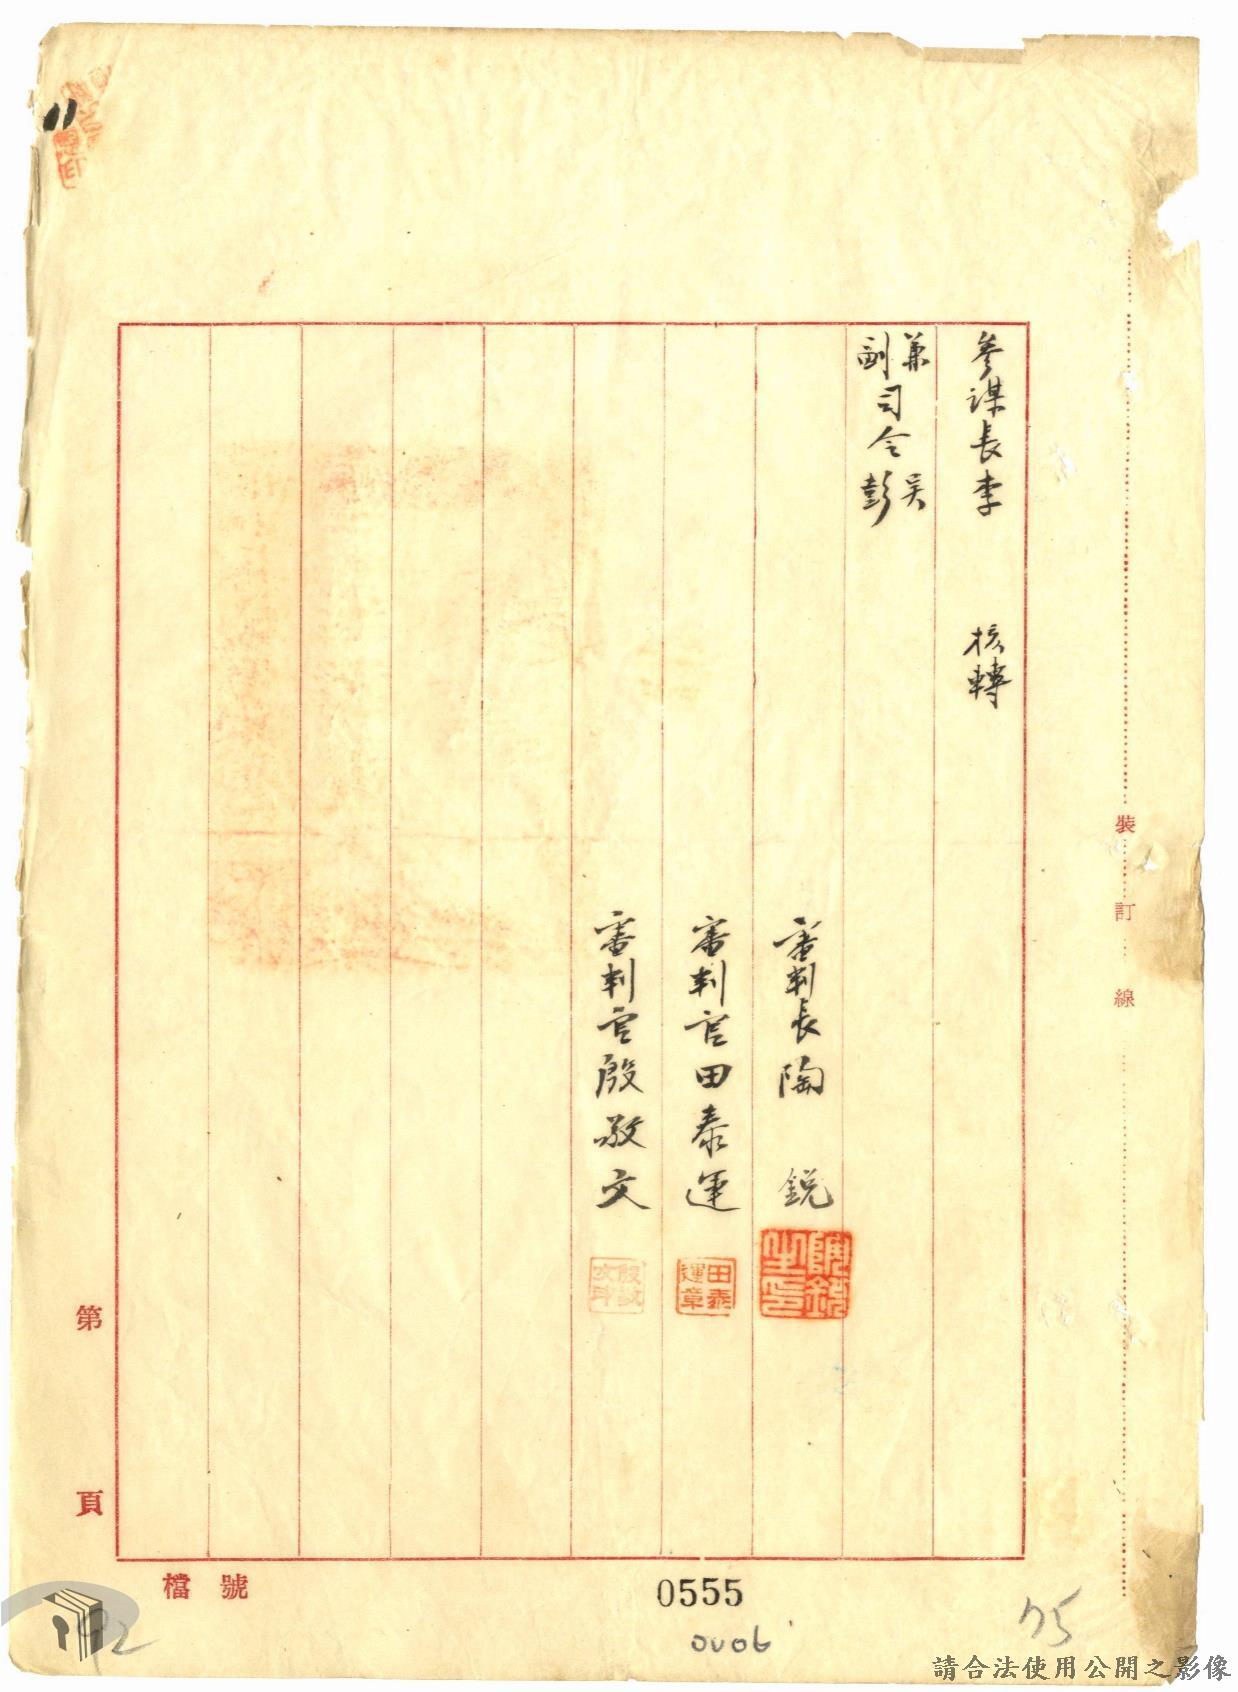 參謀長李 核轉
兼副司令吳彭
審判長陶 銳
審判官田泰運
審判官殷敬文
陶銳之印
田泰運章
殷敬文印
裝訂線
第 頁
檔 號
0555
0006
75
92
請合法使用公開之影像